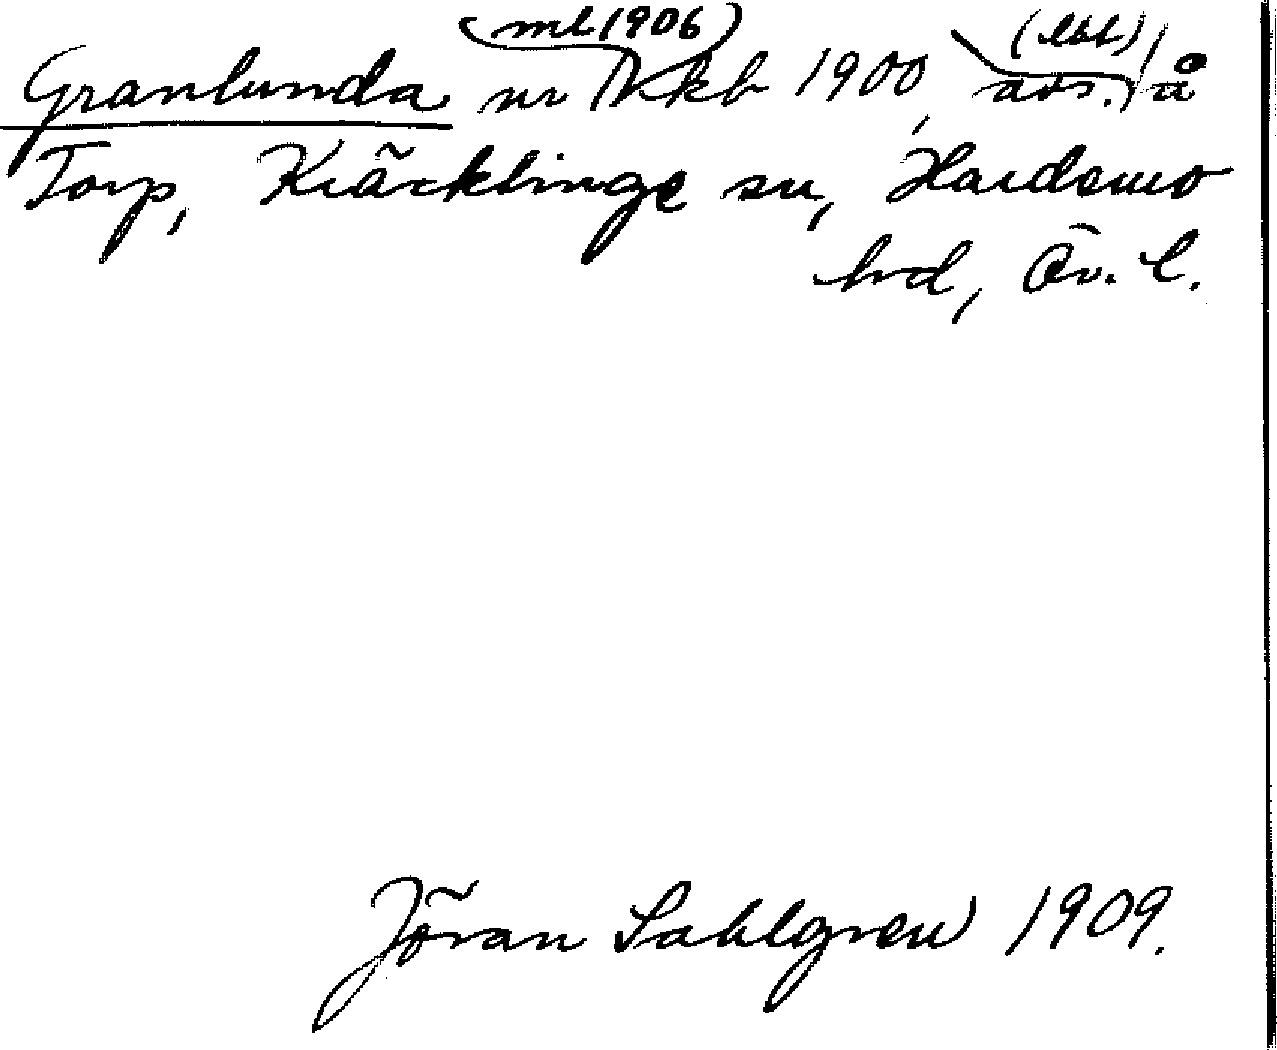 (ml 1906)
(lbl)
Granlunda nr kb 1900, avs. å
Torp, Kräcklinge sn, Hardemo
hd, Ör. l.
Jöran Sahlgren 1909.